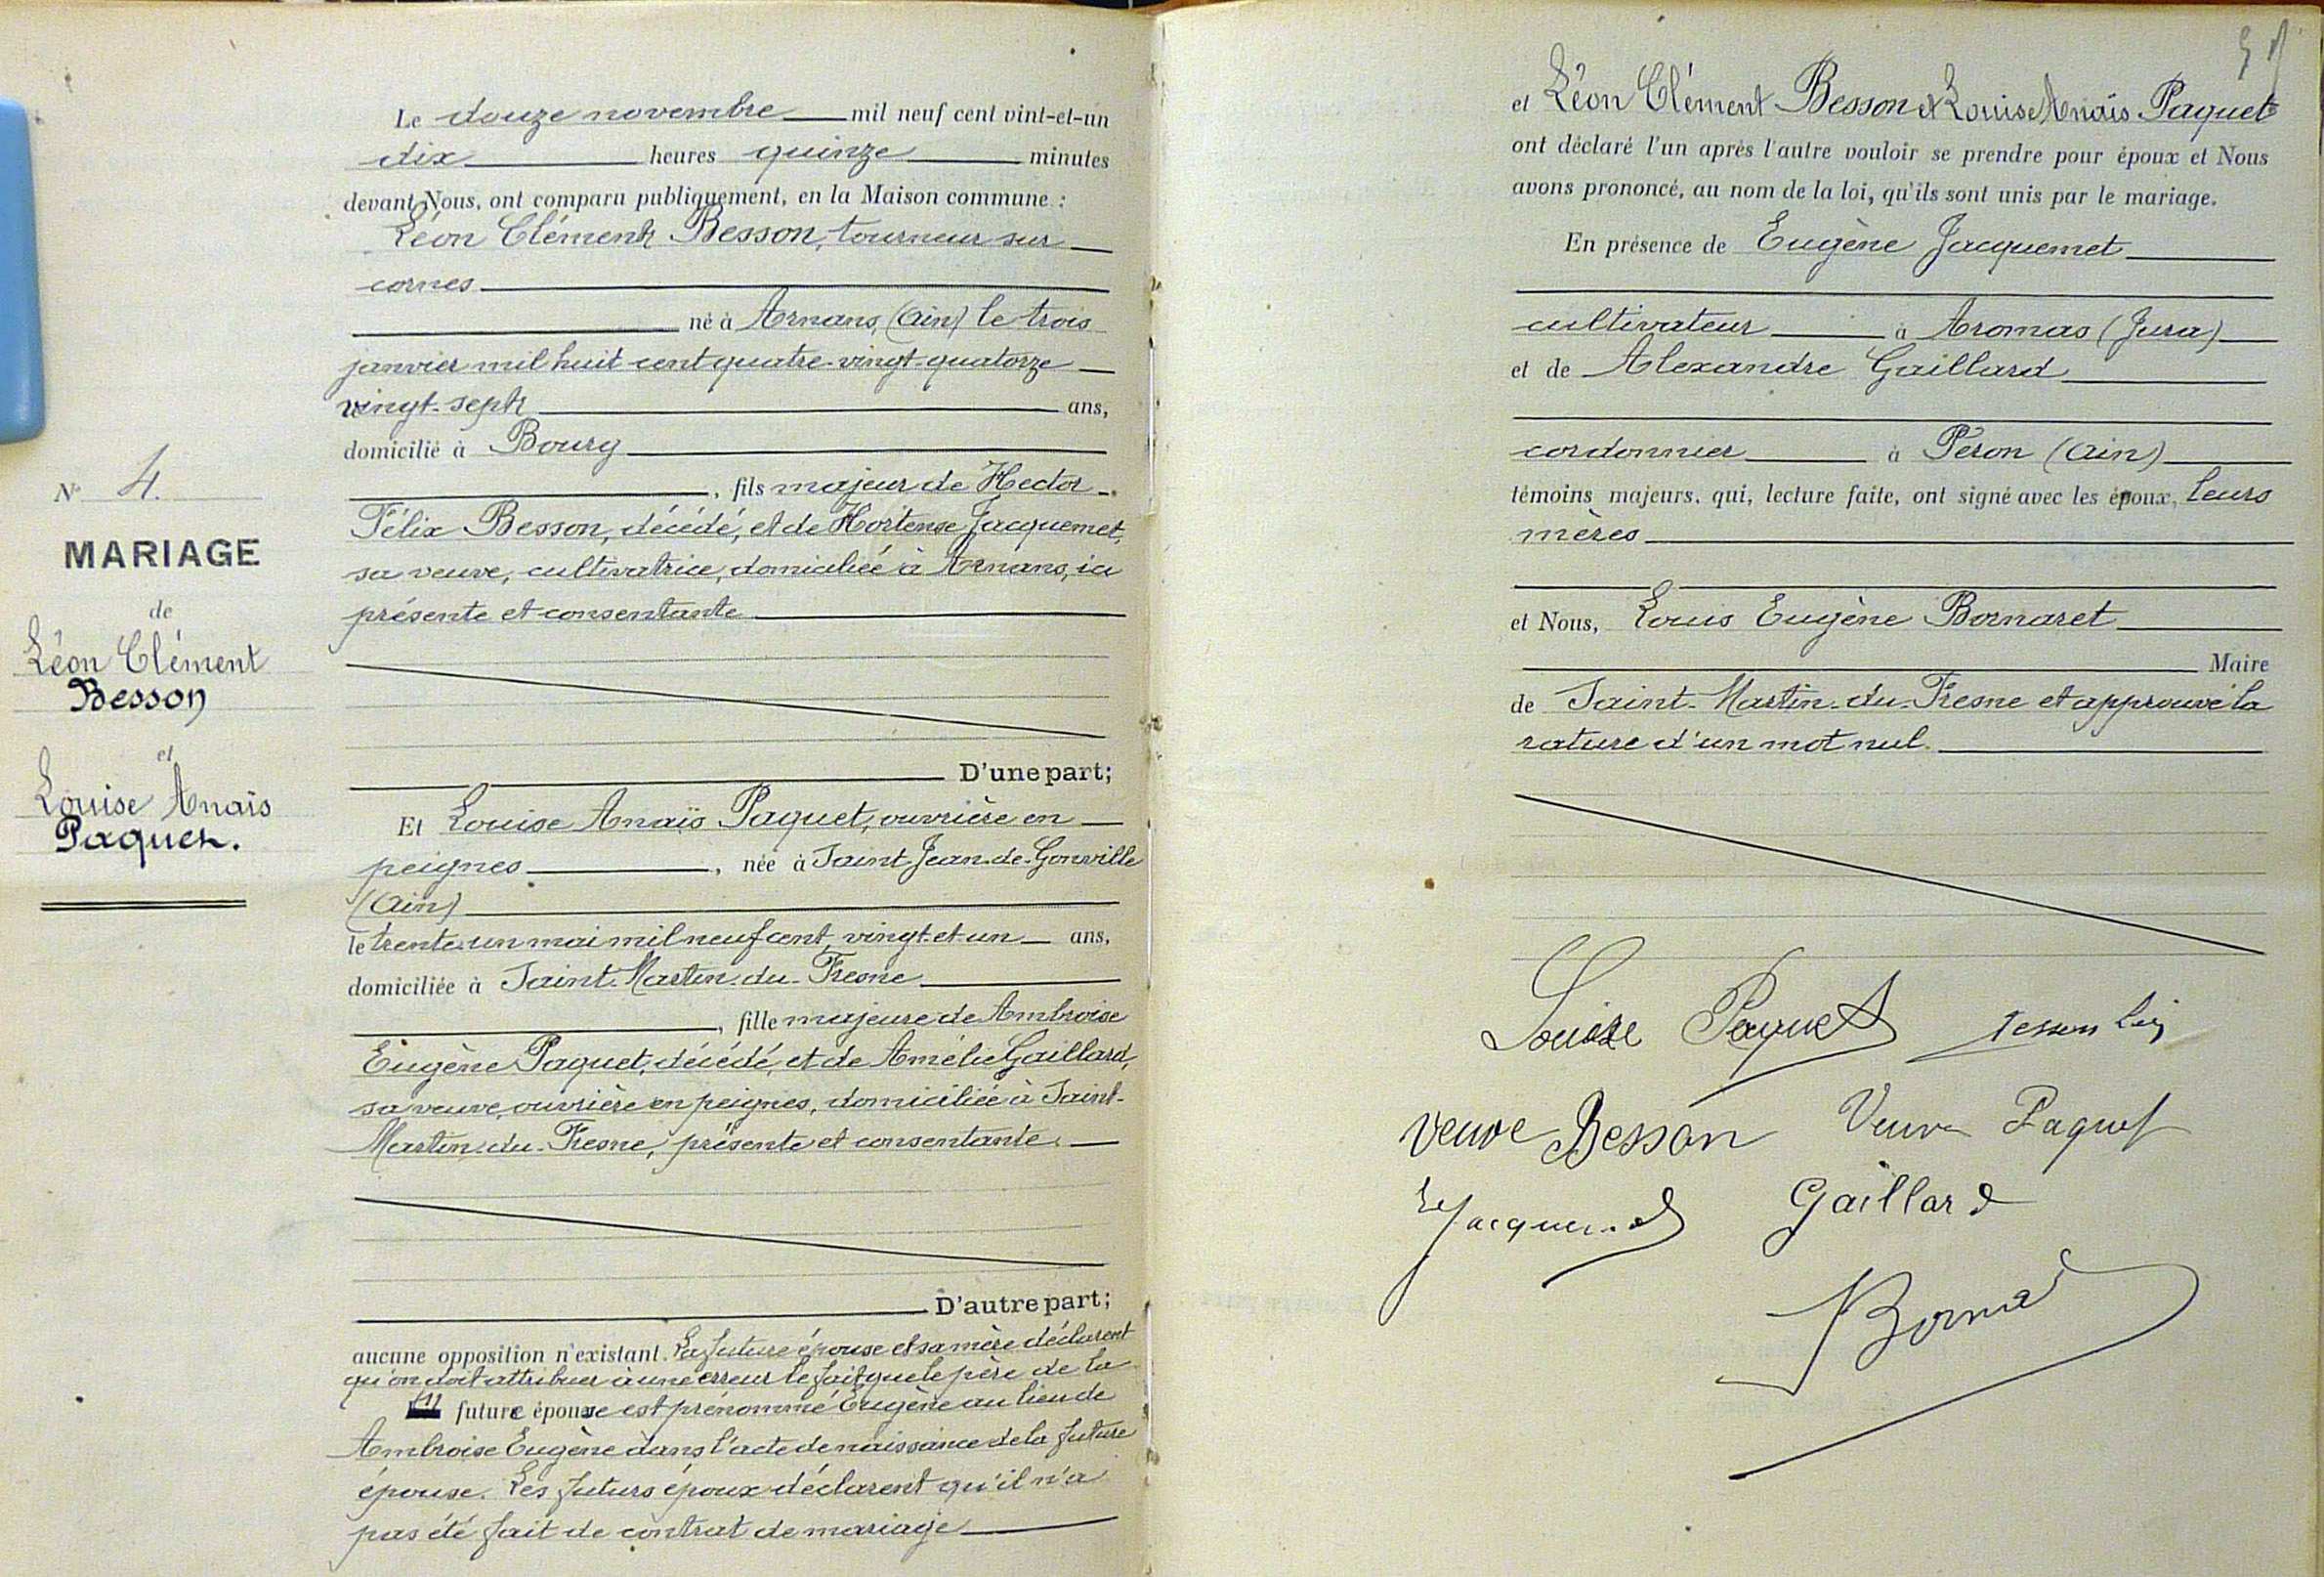 Le douze novembre mil neuf cent vint-et-un
dix heures quinze minutes
devant Nous, ont comparu publiquement, en la Maison commune :
Léon Clément Besson, tourneur sur
cornes
né à Arnans, (Ain) le trois
janvier mil huit cent quatre-vingt-quatorze
vingt-sept ans,
domicilié à Bourg
, fils majeur de Hector
Félix Besson, décédé, et de Hortense Jacquemet,
sa veuve, cultivatrice, domiciliée à Arnans, ici
présente et consentante
D'une part;
Et Louise Anaïs Paquet, ouvrière en
peignes, née à Saint Jean-de-Gonville
(Ain)
le trente un mai mil neuf cent, vingt-et-un ans,
domiciliée à Saint-Martin-du-Fresne
, fille majeure de Ambroise
Eugène Paquet, décédé, et de Amélie Gaillard,
sa veuve, ouvrière en peignes, domiciliée à Saint-
Martin-du-Fresne, présente et consentante.
D'autre part;
aucune opposition n'existant. La future épouse et sa mère déclarent
qu'on doit attribuer à une erreur le fait que le père de la
future épouse est prénommé Eugène au lieu de
Ambroise Eugène dans l'acte de naissance de la future
épouse. Les futurs époux déclarent qu'il n'a
pas été fait de contrat de mariage
N° 4.
MARIAGE
de
Léon Clément
Besson
et
Louise Anaïs
Paquet.
et Léon Clément Besson et Louise Anaïs Paquet
ont déclaré l'un après l'autre vouloir se prendre pour époux et Nous
avons prononcé, au nom de la loi, qu'ils sont unis par le mariage.
En présence de Eugène Jacquemet
cultivateur à Aromas (Jura)
et de Alexandre Gaillard
cordonnier à Péron (Ain)
témoins majeurs, qui, lecture faite, ont signé avec les époux, leurs
mères
et Nous, Louis Eugène Bornaret
Maire
de Saint-Martin-du-Fresne et approuvé la
rature d'un mot nul.
Louise Paquet
Veuve Besson Veuve Paquet
Jacquemet Gaillard